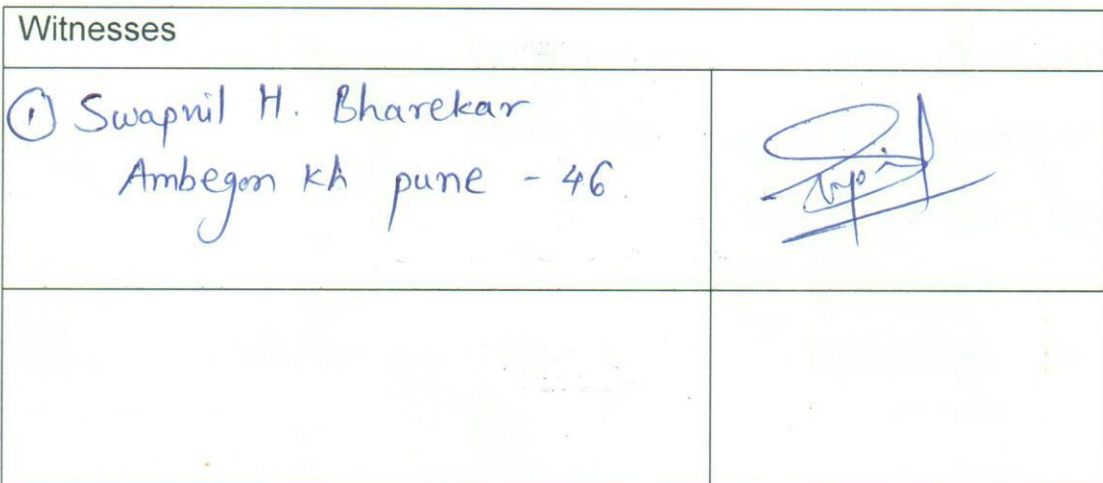 Witnesses
① Swapnil H. Bharekar
Ambegon kh pune - 46.